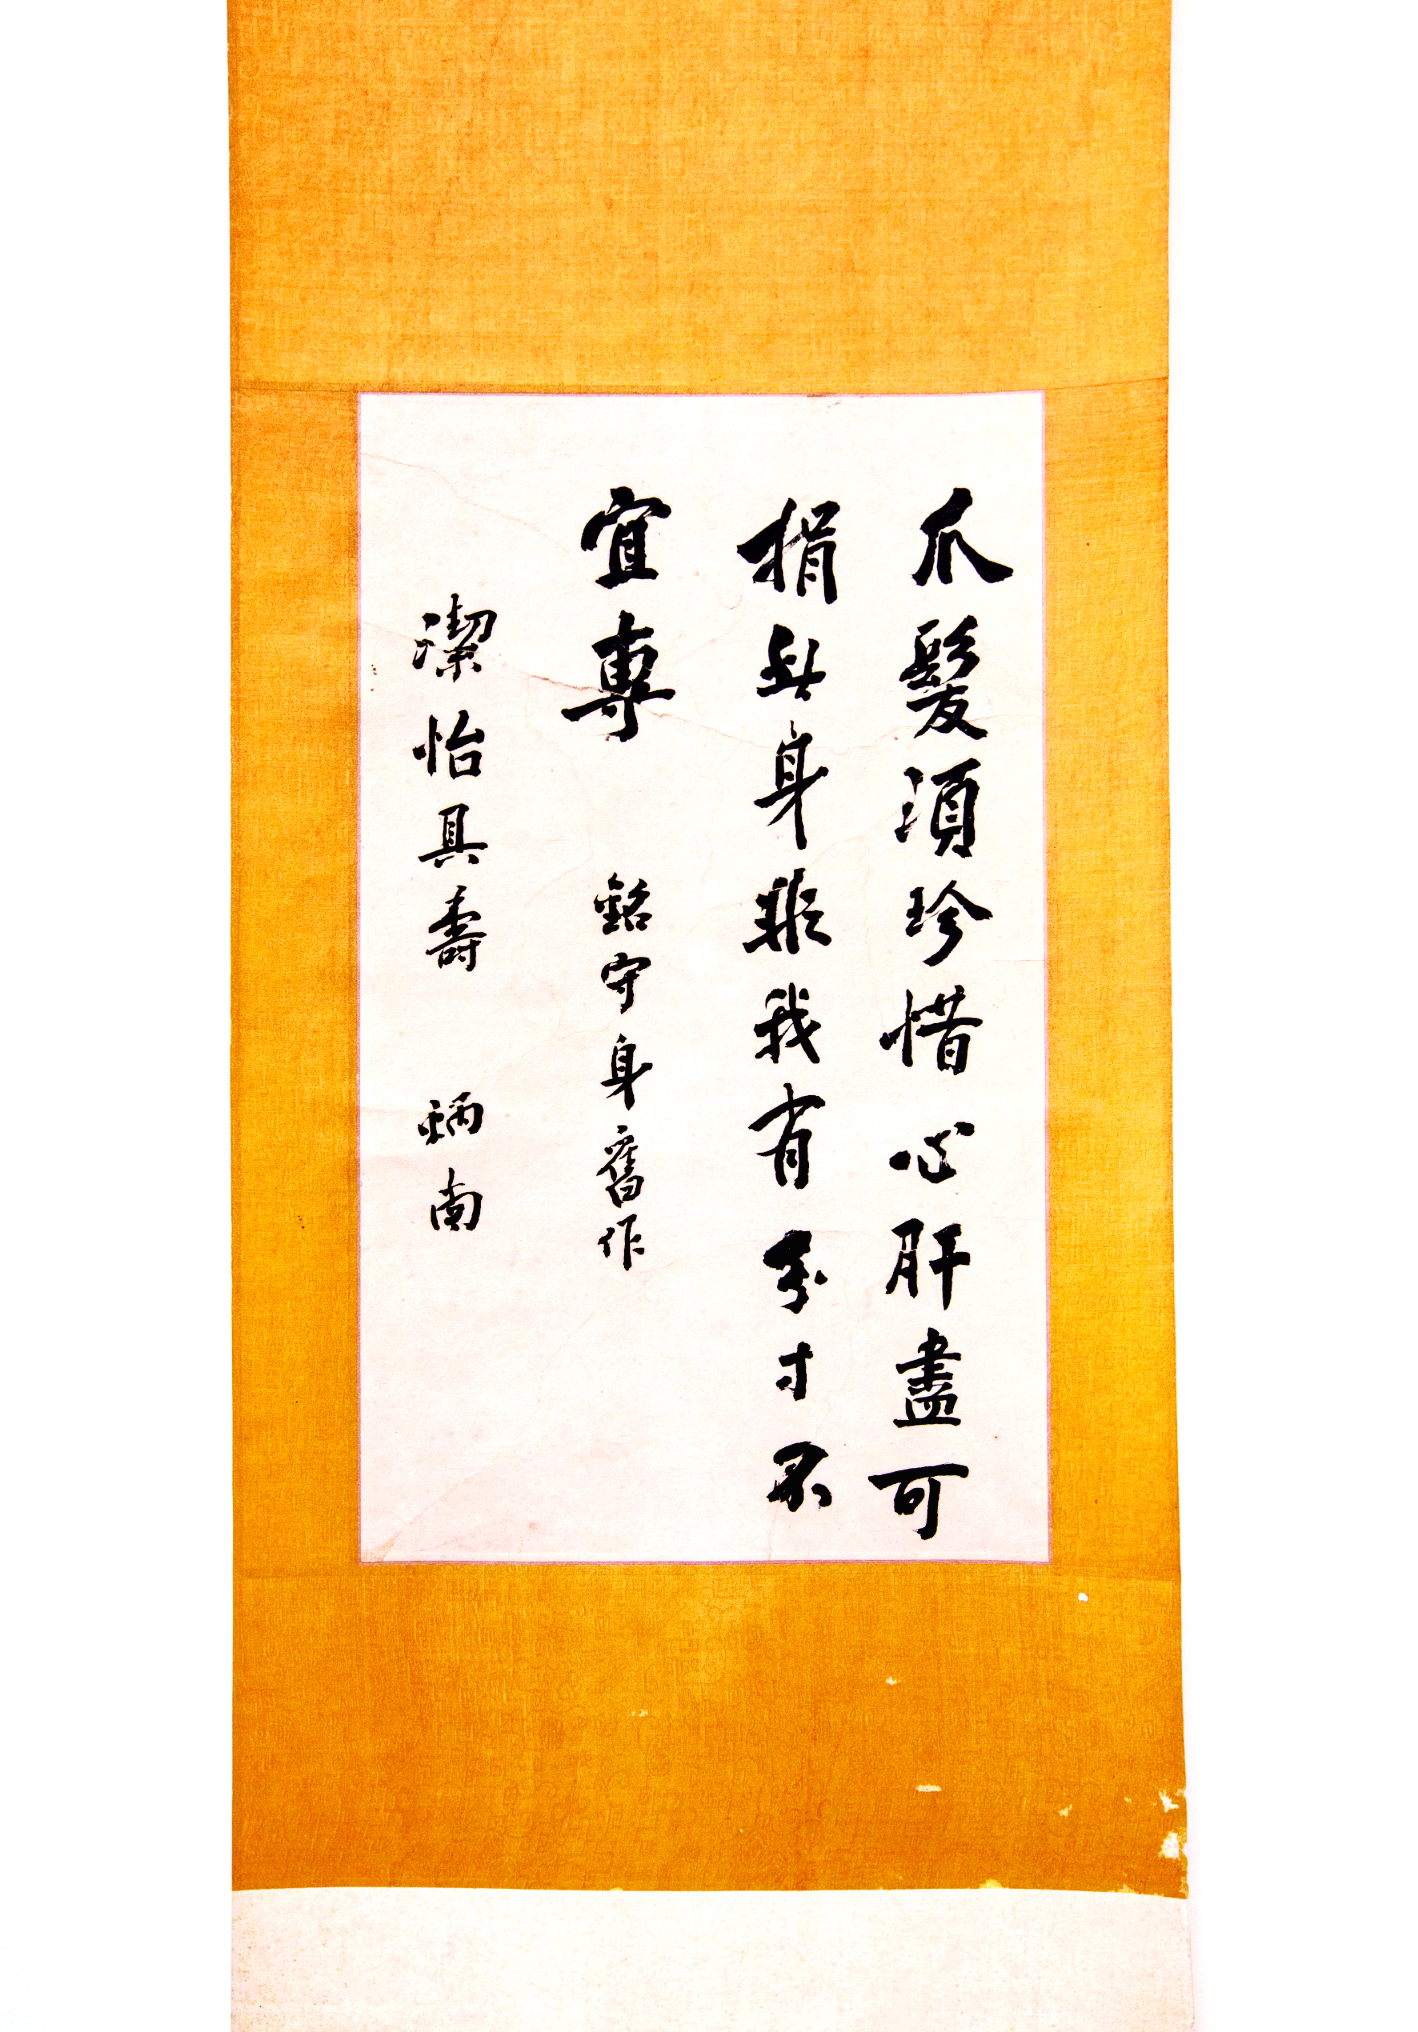 爪髮須珍惜心肝盡可
捐此身非我有分寸不
宜專 銘守身舊作
潔怡具壽 炳南